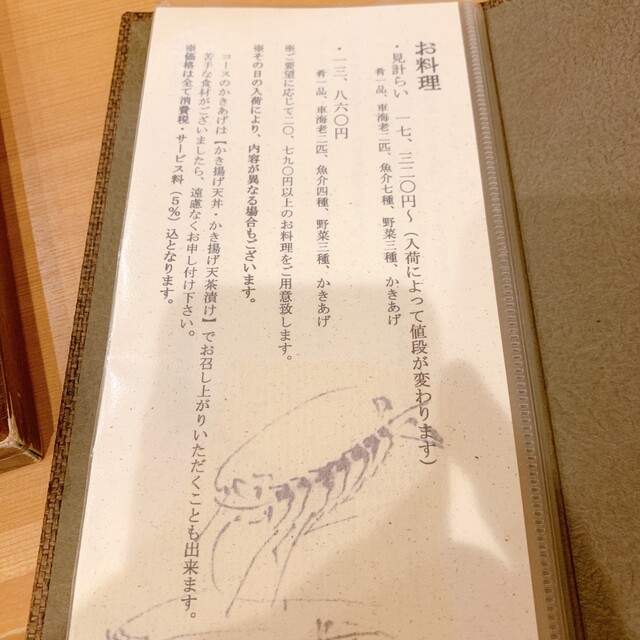 お料理
・見計らい　一七、三二〇円～（入荷によって値段が変わります）
肴一品、車海老二匹、魚介七種、野菜三種、かきあげ
・一三、八六〇円
肴一品、車海老二匹、魚介四種、野菜三種、かきあげ
※ご要望に応じて二〇、七九〇円以上のお料理をご用意致します。
※その日の入荷により、内容が異なる場合もございます。
コースのかきあげは【かき揚げ天丼・かき揚げ天茶漬け】でお召し上がりいただくことも出来ます。
苦手な食材がございましたら、遠慮なくお申し付け下さい。
※価格は全て消費税・サービス料（5％）込となります。